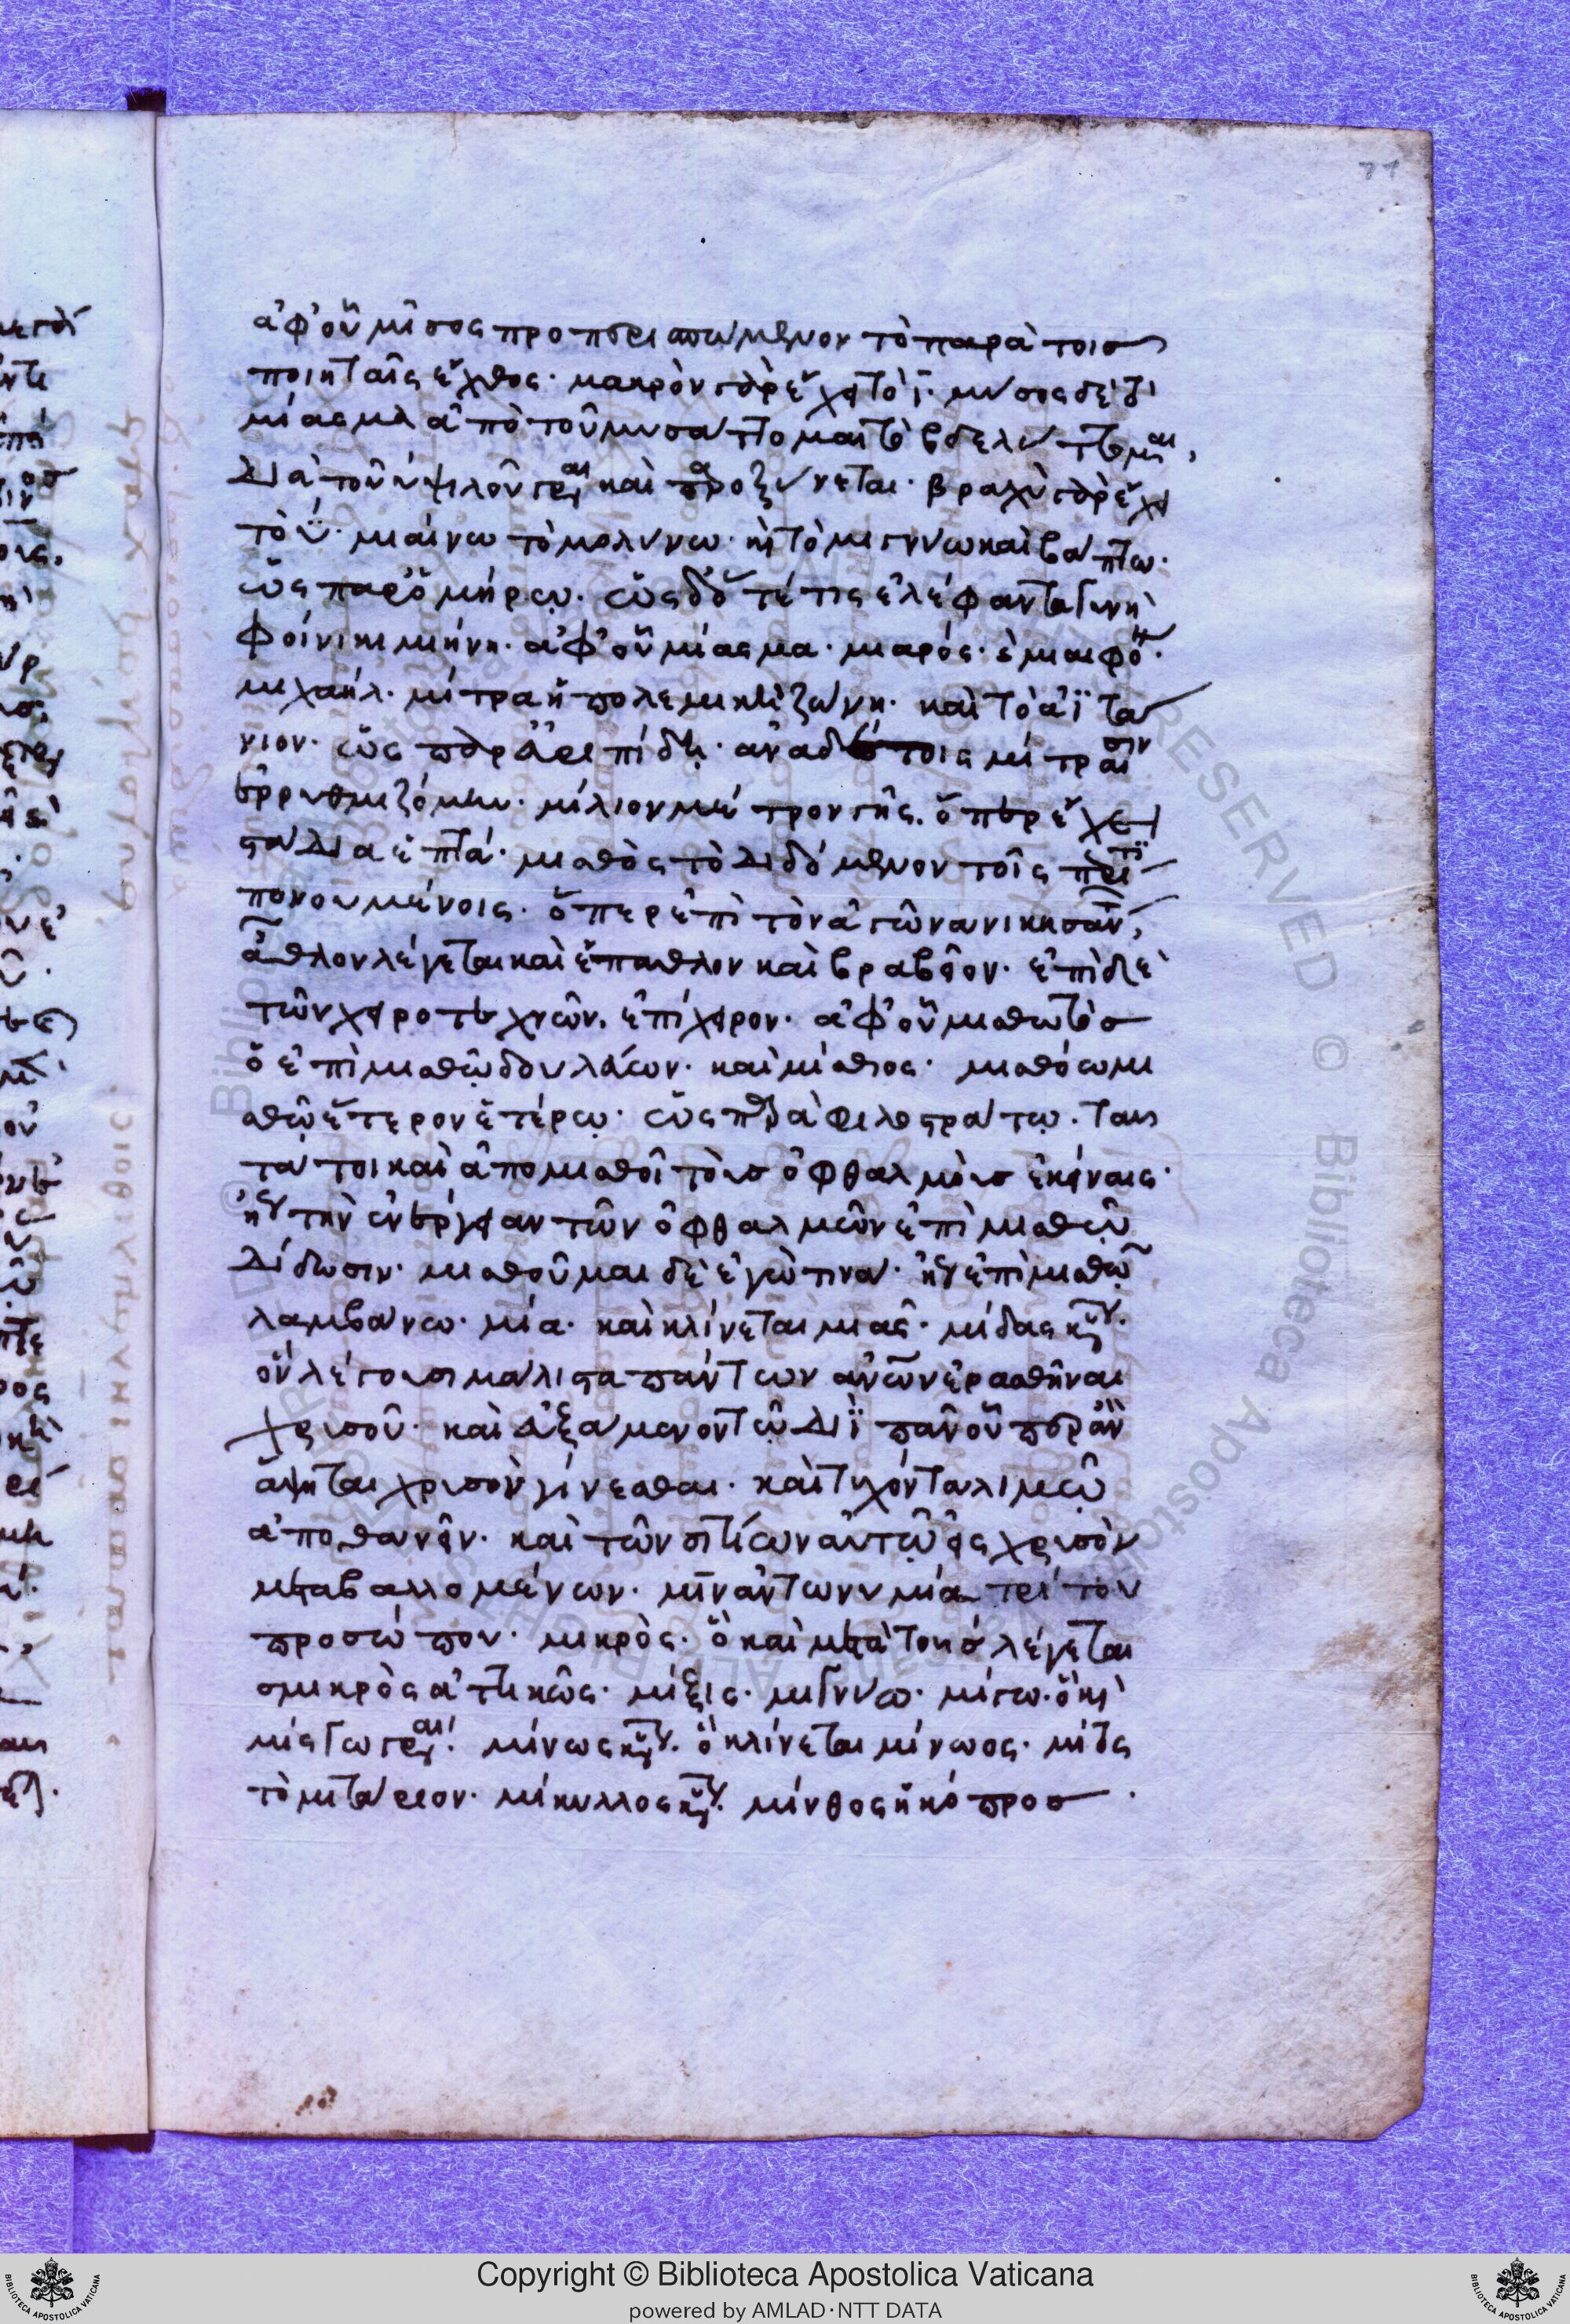 71
ἀφ' οὗ μῖσος προπερισπώμενον τὸ παρὰ τοῖς
ποιηταῖς ἔχθος· μακρὸν γὰρ ἔχει τὸ ϊ· μύσος δὲ τὸ
μίασμα ἀπὸ τοῦ μυσάττομαι τὸ βδελύττομαι,
διὰ τοῦ υ ψιλοῦ γράφεται καὶ παροξύνεται· βραχὺ γὰρ ἔχει
τὸ ϋ· μιαίνω τὸ μολύνω· καὶ τὸ μιγνύω καὶ βάπτω·
ὡς παρ' ὁμήρῳ· ὡς δ' ὅτέ τις ἐλέφαντα γυνὴ
φοίνικι μιήνη· ἀφ' οὗ μίασμα· μιαρός· ὁ μιαιφόνος·
μιχαήλ· μίτρα ἡ πολεμικὴ ζώνη· καὶ τὸ
νιον· ὡς παρ' εὐριπίδῃ· μίτραισιν
ἐρρυθμιζόμην· μίλιον μέτρον γῆς. ὅπερ ἔχει
στάδια ἑπτά· μισθὸς τὸ διδόμενον τοῖς
πονουμένοις· ὅπερ ἐπὶ τὸν ἀγῶνα νικησάντων,
ἆθλον λέγεται καὶ ἔπαθλον καὶ βραβεῖον· ἐπὶ δὲ
τῶν χειροτεχνῶν. ἐπίχειρον· ἀφ' οὗ μισθωτὸς
ὁ ἐπὶ μισθῷ δουλεύων· καὶ μίσθιος· μισθόω μι
σθῶ ἕτερον ἑτέρῳ· ὡς παρὰ φιλοστράτῳ· ταῦ
τά τοι καὶ ἀπομισθοῖ τοὺς ὀφθαλμοὺς ἐκείναις·
ἤγουν τὴν ἐνέργειαν τῶν ὀφθαλμῶν ἐπὶ μισθῷ
δίδωσιν· μισθοῦμαι δὲ ἐγώ τινα· ἤγουν ἐπὶ μισθῷ
λαμβάνω· μία· καὶ κλίνεται μιᾶς· μίδας κύριον·
ὃν λέγουσι μάλιστα πάντων ἀνθρώπων ἐρασθῆναι
χρυσοῦ· καὶ εὐξάμενον τῷ διῒ πᾶν οὗπερ ἂν
ἅψηται χρυσὸν γίνεσθαι· καὶ τυχόντα λιμῷ
ἀποθανεῖν· καὶ τῶν σιτίων αὐτῷ εἰς χρυσὸν
μεταβαλλομένων· μὶν ἀντωνυμία τρίτου
προσώπου· μικρὸς· ὃ καὶ μετὰ τοῦ σ λέγεται
σμικρὸς ἀττικῶς· μίξις· μιγνύω· μίγω· ὃ καὶ
μίσγω γράφεται· μίνως κύριον· ὃ κλίνεται μίνωος· μίτος
τὸ μιτάριον· μίκυλλος κύριον· μίνθος ἡ κόπρος
Copyright © Biblioteca Apostolica Vaticana
powered by AMLAD·NTT DATA